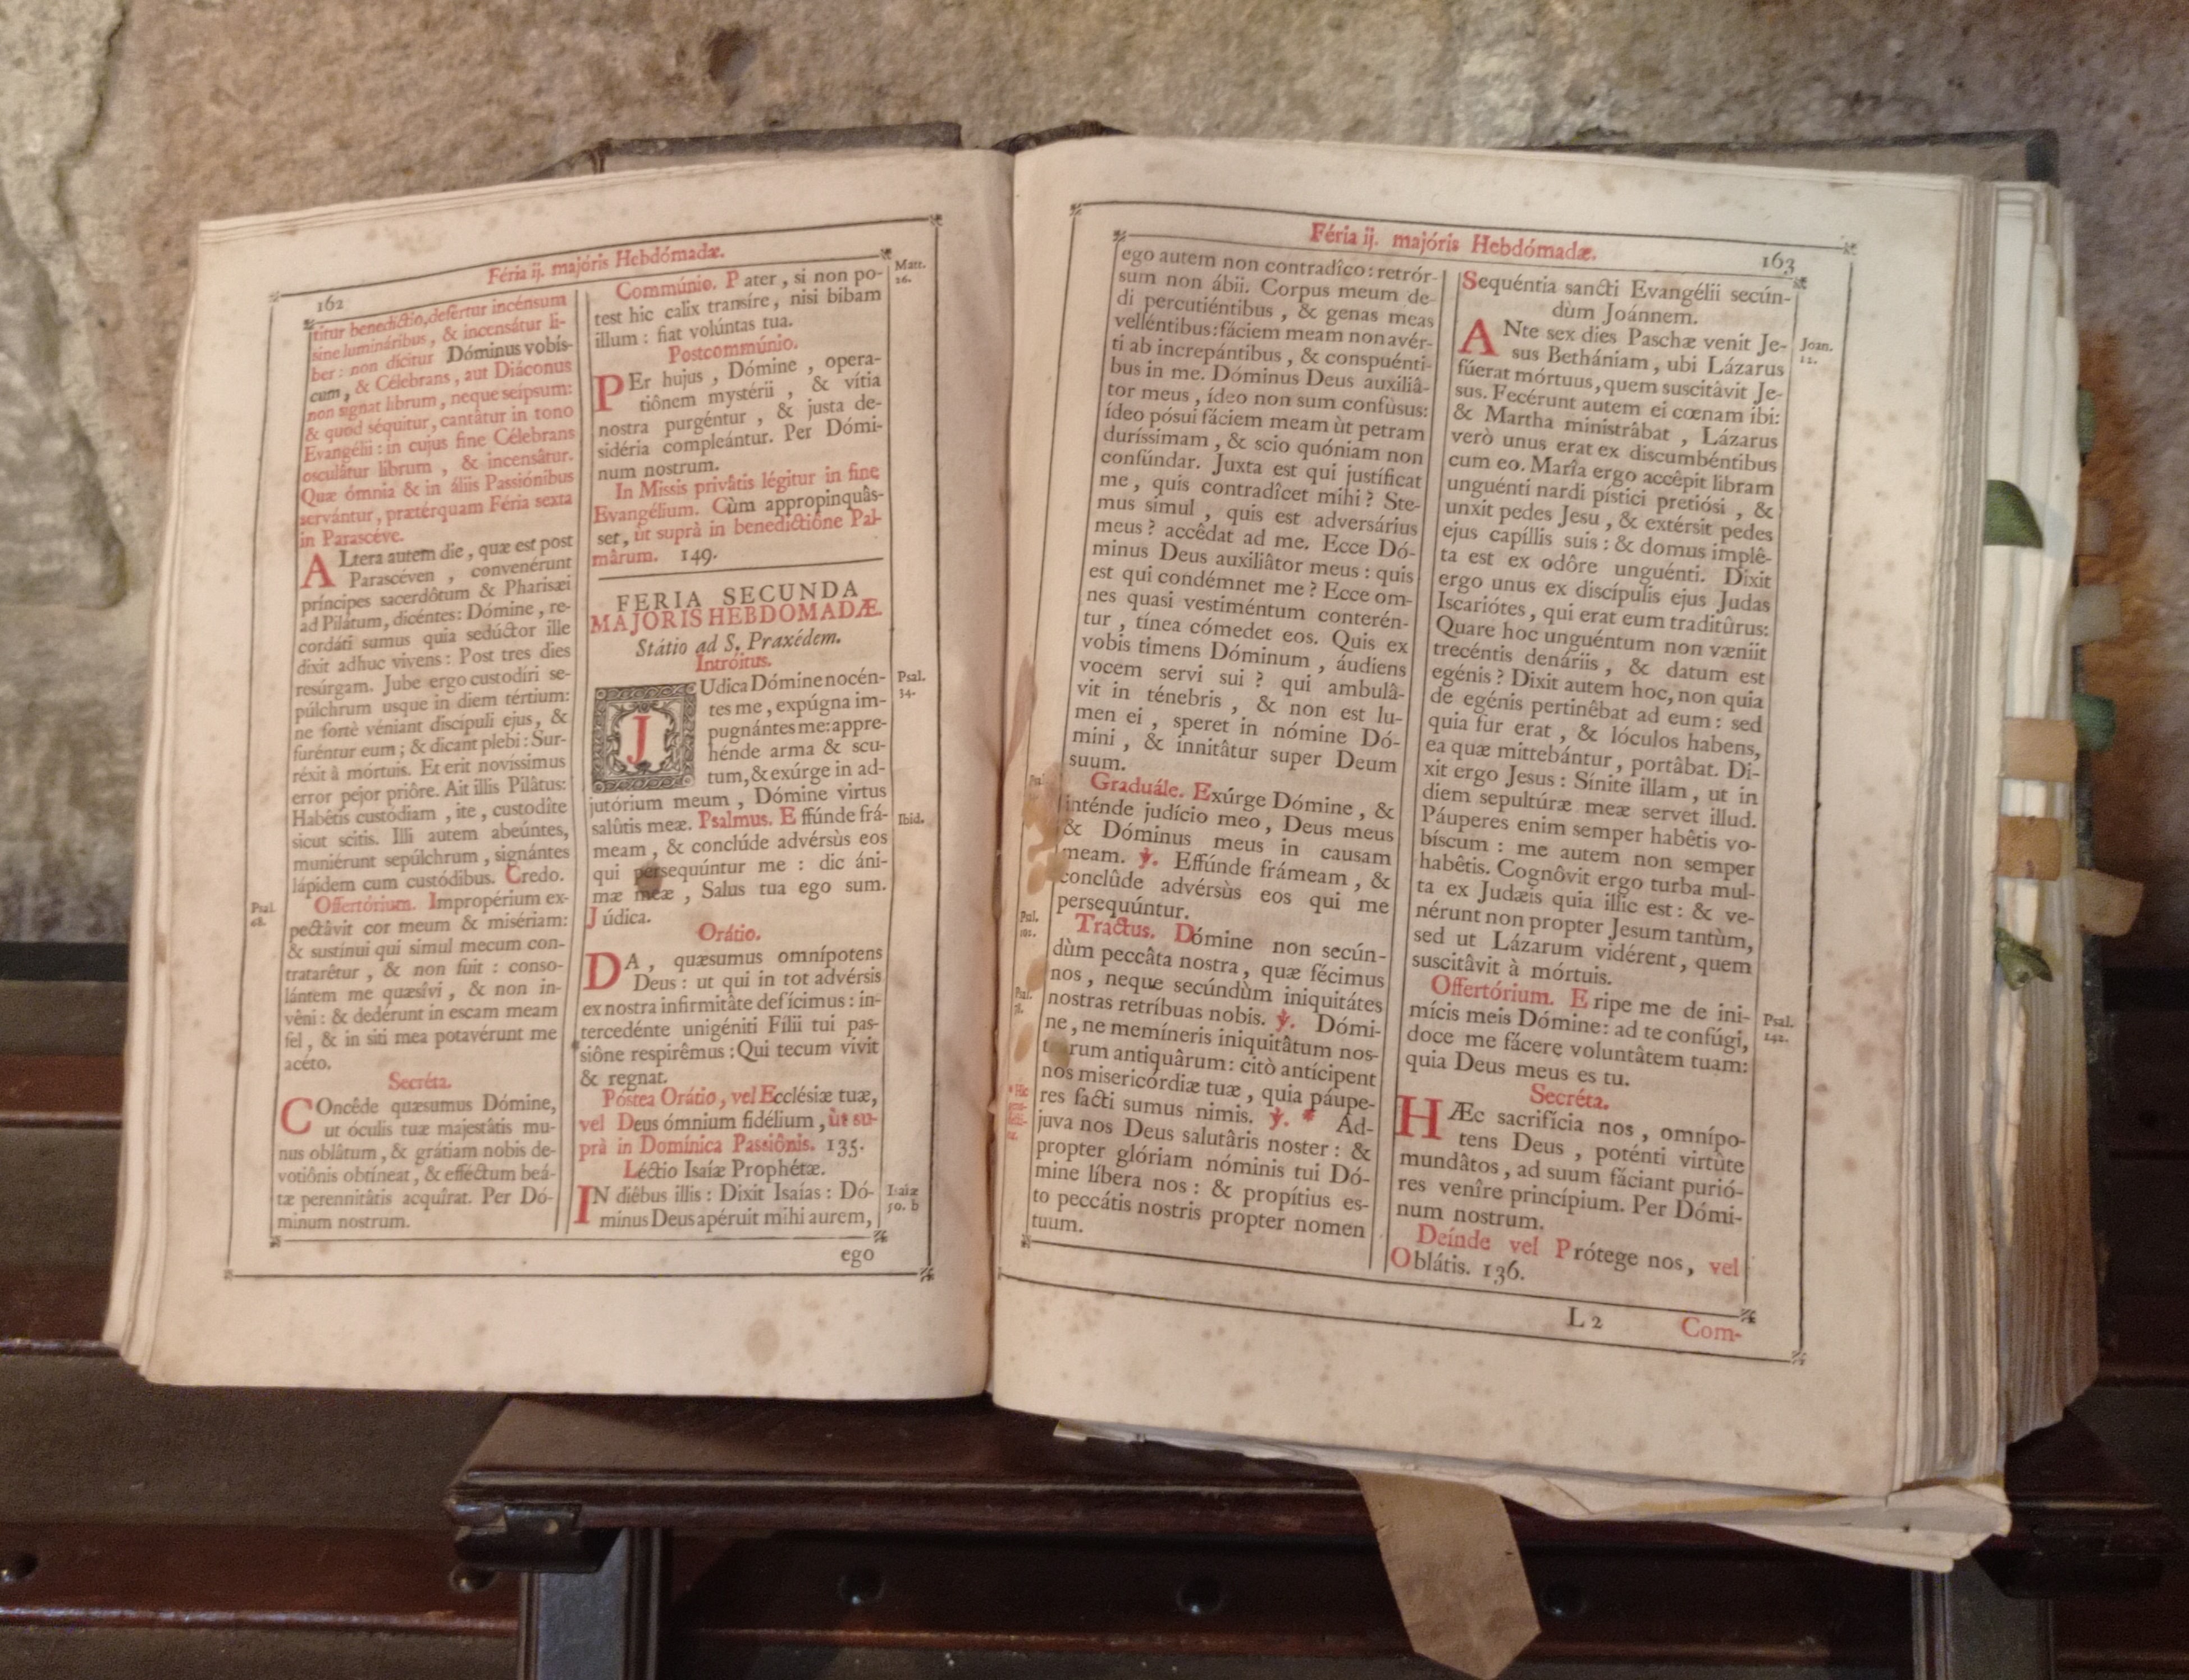 Féria ij. majóris Hebdómadæ.
162
titur benedictio, defertur incénsum
sine lumináribus, & incensátur li-
ber: non dícitur Dóminus vobís-
cum, & Célebrans, aut Diáconus
non signat librum, neque seípsum:
& quod séquitur, cantâtur in tono
Evangélii: in cujus fine Célebrans
osculâtur librum, & incensâtur.
Quæ ómnia & in áliis Passiónibus
servántur, prætérquam Féria sexta
in Parascéve.
ALtera autem die, quæ est post
Parascéven, convenérunt
príncipes sacerdôtum & Pharisæi
ad Pilátum, dicéntes: Dómine, re-
cordáti sumus quia sedúctor ille
dixit adhuc vivens: Post tres dies
resúrgam. Jube ergo custodíri se-
púlchrum usque in diem tértium:
ne fortè véniant discípuli ejus, &
furéntur eum; & dicant plebi: Sur-
réxit à mórtuis. Et erit novíssimus
error pejor priôre. Ait illis Pilâtus:
Habêtis custódiam, ite, custodîte
sicut scitis. Illi autem abeúntes,
muniérunt sepúlchrum, signántes
lápidem cum custódibus. Credo.
Offertórium. Impropérium ex-
pectâvit cor meum & misériam:
& sustínui qui simul mecum con-
tratarêtur, & non fuit: conso-
lántem me quæsîvi, & non in-
vêni: & dedérunt in escam meam
fel, & in siti mea potavérunt me
acéto.
Psal.
68.
Secréta.
COncêde quæsumus Dómine,
ut óculis tuæ majestâtis mu-
nus oblâtum, & grátiam nobis de-
votiônis obtíneat, & efféctum beá-
tæ perennitâtis acquîrat. Per Dó-
minum nostrum.
Commúnio. Pater, si non po-
test hic calix transíre, nisi bibam
illum: fiat volúntas tua.
Matt.
26.
Postcommúnio.
PEr hujus, Dómine, opera-
tiônem mystérii, & vítia
nostra purgéntur, & justa de-
sidéria compleántur. Per Dómi-
num nostrum.
In Missis privâtis légitur in fine
Evangélium. Cùm appropinquâs-
set, ùt suprà in benedictiône Pal-
mârum. 149.
FERIA SECUNDA
MAJORIS HEBDOMADÆ.
Státio ad S. Praxédem.
Intróitus.
JUdica Dómine nocén-
tes me, expúgna im-
pugnántes me: appre-
hénde arma & scu-
tum, & exúrge in ad-
jutórium meum, Dómine virtus
salûtis meæ. Psalmus. Effúnde frá-
meam, & conclúde advérsùs eos
qui persequúntur me: dic áni-
mæ meæ, Salus tua ego sum.
Júdica.
Psal.
34.
Ibid.
Orátio.
DA, quæsumus omnípotens
Deus: ut qui in tot advérsis
ex nostra infirmitâte defícimus: in-
tercedénte unigéniti Fílii tui pas-
siône respirêmus: Qui tecum vivit
& regnat.
Póstea Orátio, vel Ecclésiæ tuæ,
vel Deus ómnium fidélium, ùt su-
prà in Domínica Passiônis. 135.
Léctio Isaíæ Prophétæ.
IN diêbus illis: Dixit Isaías: Dó-
minus Deus apéruit mihi aurem,
Isaiæ
50. b
ego
Féria ij. majóris Hebdómadæ.
163
ego autem non contradîco: retrór-
sum non ábii. Corpus meum de-
di percutiéntibus, & genas meas
velléntibus: fáciem meam non avér-
ti ab increpántibus, & conspuénti-
bus in me. Dóminus Deus auxiliâ-
tor meus, ídeo non sum confùsus:
ídeo pósui fáciem meam ùt petram
duríssimam, & scio quóniam non
confúndar. Juxta est qui justíficat
me, quis contradîcet mihi? Ste-
mus simul, quis est adversárius
meus? accêdat ad me. Ecce Dó-
minus Deus auxiliâtor meus: quis
est qui condémnet me? Ecce om-
nes quasi vestiméntum conterén-
tur, tínea cómedet eos. Quis ex
vobis timens Dóminum, áudiens
vocem servi sui? qui ambulâ-
vit in ténebris, & non est lu-
men ei, speret in nómine Dó-
mini, & innitâtur super Deum
suum.
Graduále. Exúrge Dómine, &
inténde judício meo, Deus meus
& Dóminus meus in causam
meam. ℣. Effúnde frámeam, &
conclûde advérsùs eos qui me
persequúntur.
Tractus. Dómine non secún-
dùm peccâta nostra, quæ fécimus
nos, neque secúndùm iniquitátes
nostras retríbuas nobis. ℣. Dómi-
ne, ne memíneris iniquitâtum nos-
trarum antiquârum: citò antícipent
nos misericórdiæ tuæ, quia páupe-
res facti sumus nimis. ℣. * Ad-
juva nos Deus salutâris noster: &
propter glóriam nóminis tui Dó-
mine líbera nos: & propítius es-
to peccátis nostris propter nomen
tuum.
Psal.
102.
Psal.
78.
* Hic
Sequéntia sancti Evangélii secún-
dùm Joánnem.
ANte sex dies Paschæ venit Je-
sus Bethániam, ubi Lázarus
fúerat mórtuus, quem suscitâvit Je-
sus. Fecérunt autem ei cœnam ibi:
& Martha ministrâbat, Lázarus
verò unus erat ex discumbéntibus
cum eo. María ergo accêpit libram
unguénti nardi pístici pretiósi, &
unxit pedes Jesu, & extérsit pedes
ejus capíllis suis: & domus implê-
ta est ex odôre unguénti. Dixit
ergo unus ex discípulis ejus Judas
Iscariótes, qui erat eum traditûrus:
Quare hoc unguéntum non væniit
trecéntis denáriis, & datum est
egénis? Dixit autem hoc, non quia
de egénis pertinêbat ad eum: sed
quia fur erat, & lóculos habens,
ea quæ mittebántur, portâbat. Di-
xit ergo Jesus: Sínite illam, ut in
diem sepultúræ meæ servet illud.
Páuperes enim semper habêtis vo-
bíscum: me autem non semper
habêtis. Cognôvit ergo turba mul-
ta ex Judæis quia illic est: & ve-
nérunt non propter Jesum tantùm,
sed ut Lázarum vidérent, quem
suscitâvit à mórtuis.
Joan.
12.
Offertórium. Eripe me de ini-
mícis meis Dómine: ad te confúgi,
doce me fácere voluntâtem tuam:
quia Deus meus es tu.
Psal.
142.
Secréta.
HÆc sacrifícia nos, omnípo-
tens Deus, poténti virtûte
mundâtos, ad suum fáciant purió-
res venîre princípium. Per Dómi-
num nostrum.
Deínde vel Prótege nos, vel
Oblátis. 136.
L 2
Com-